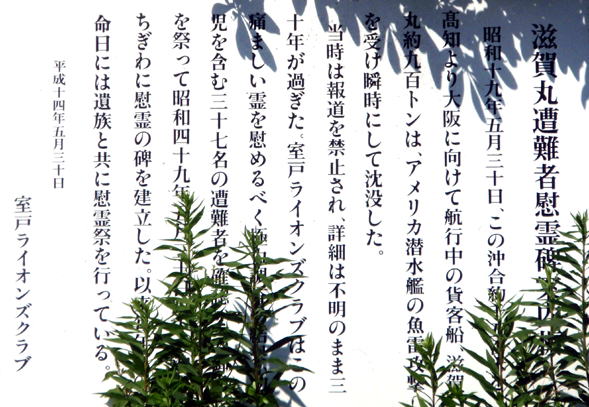 滋賀丸遭難者慰霊碑
昭和十九年五月三十日、この沖合約
高知より大阪に向けて航行中の貨客船、滋賀
丸約九百トンは、アメリカ潜水艦の魚雷攻撃
を受け瞬時にして沈没した。
当時は報道を禁止され、詳細は不明のまま三
十年が過ぎた。室戸ライオンズクラブはこの
痛ましい霊を慰めるべく
児を含む三十七名の遭難者を
を祭って昭和四十九年五月
ちぎわに慰霊の碑を建立した。以
命日には遺族と共に慰霊祭を行っている。
平成十四年五月三十日
室戸ライオンズクラブ